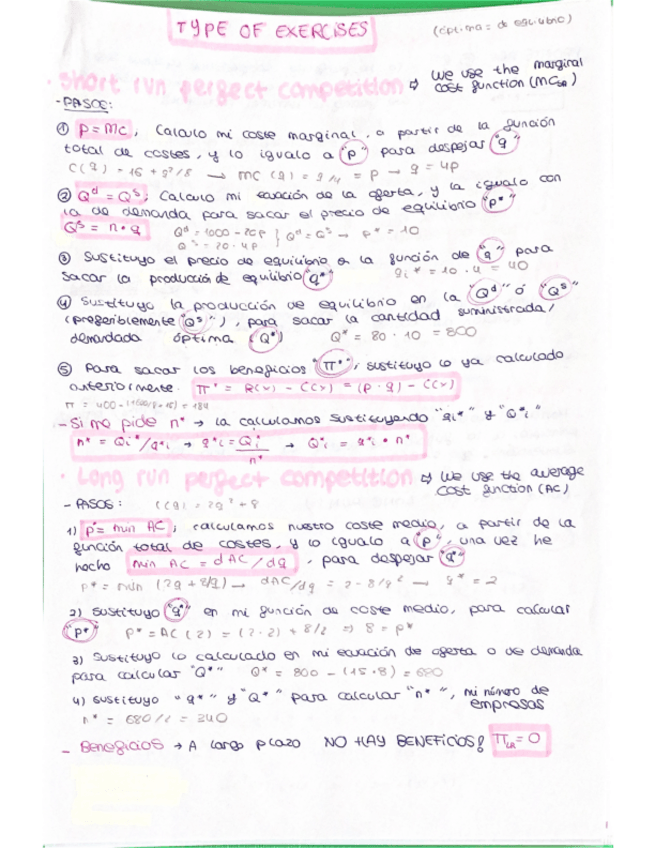 TYPE OF EXERCISES
(óptima = de equilibrio)
· Short run pergect competition ⇨ we use the marginal
cost function (MCSR)
- PASOS:
① P = MC, Calculo mi coste marginal, a partir de la función
total de costes, y lo igualo a "p" para despejar "q"
C(q) = 16 + q²/8 → MC(q) = q/4 = P → q = 4P
② Qd = Qs; Calculo mi ecuación de la oferta, y la igualo con
la de demanda para sacar el precio de equilibrio "p*"
Qs = n · q
Qd = 1000 - 20p } Qd = Qs → p* = 10
Qs = 20 · 4p
③ Sustituyo el precio de equilibrio a la función de "q" para
sacar la producción de equilibrio "q*"
qi* = 10 · 4 = 40
④ Sustituyo la producción de equilibrio en la "Qd" ó "Qs"
(preferiblemente "Qs"), para sacar la cantidad suministrada/
demandada óptima (Q*)
Q* = 80 · 10 = 800
⑤ Para sacar los beneficios "π*", sustituyo lo ya calculado
anteriormente. π* = R(x) - C(x) = (p · q) - C(x)
- Si me pide n* → la calculamos sustituyendo "qi*" y "Q*i"
n* = Qi*/q*i → q*i = Qi/n* → Q*i = q*i · n*
· Long run pergect competition ⇨ We use the average
cost function (AC)
- PASOS: C(q) = 2q² + 8
1) p = min AC; calculamos nuestro coste medio, a partir de la
función total de costes, y lo igualo a "p", una vez he
hecho min AC = dAC/dq, para despejar "q*"
p* = min (2q + 8/q) → dAC/dq = 2 - 8/q² → q* = 2
2) sustituyo "q*" en mi función de coste medio, para calcular
"p*" p* = AC(2) = (2·2) + 8/2 ⇒ 8 = p*
3) Sustituyo lo calculado en mi ecuación de oferta o de demanda
para calcular "Q*" Q* = 800 - (15·8) = 680
4) sustituyo "q*" y "Q*" para calcular "n*", mi número de
empresas
n* = 680/2 = 340
- Beneficios → A largo plazo NO HAY BENEFICIOS! πLR = 0